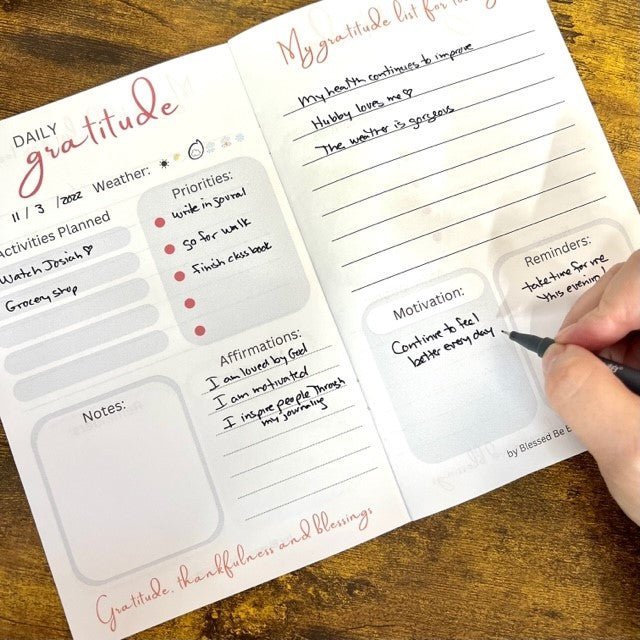 DAILY
gratitude
11 / 3 / 2022 Weather:
Activities Planned
Watch Josiah ♡
Grocery shop
Priorities:
write in jounal
go for walk
finish class book
Affirmations:
I am loved by God
I am motivated
I inspire people through
my journaling
Notes:
Gratitude, thankfulness and blessings
My gratitude list for
My health continues to improve
Hubby loves me ♡
The weather is gorgeous
Motivation:
Continue to feel
better every day
Reminders:
take time for me
this evening!
by Blessed Be